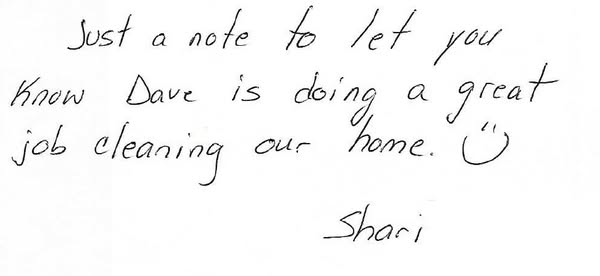 Just a note to let you
know Dave is doing a great
job cleaning our home. 
Shari